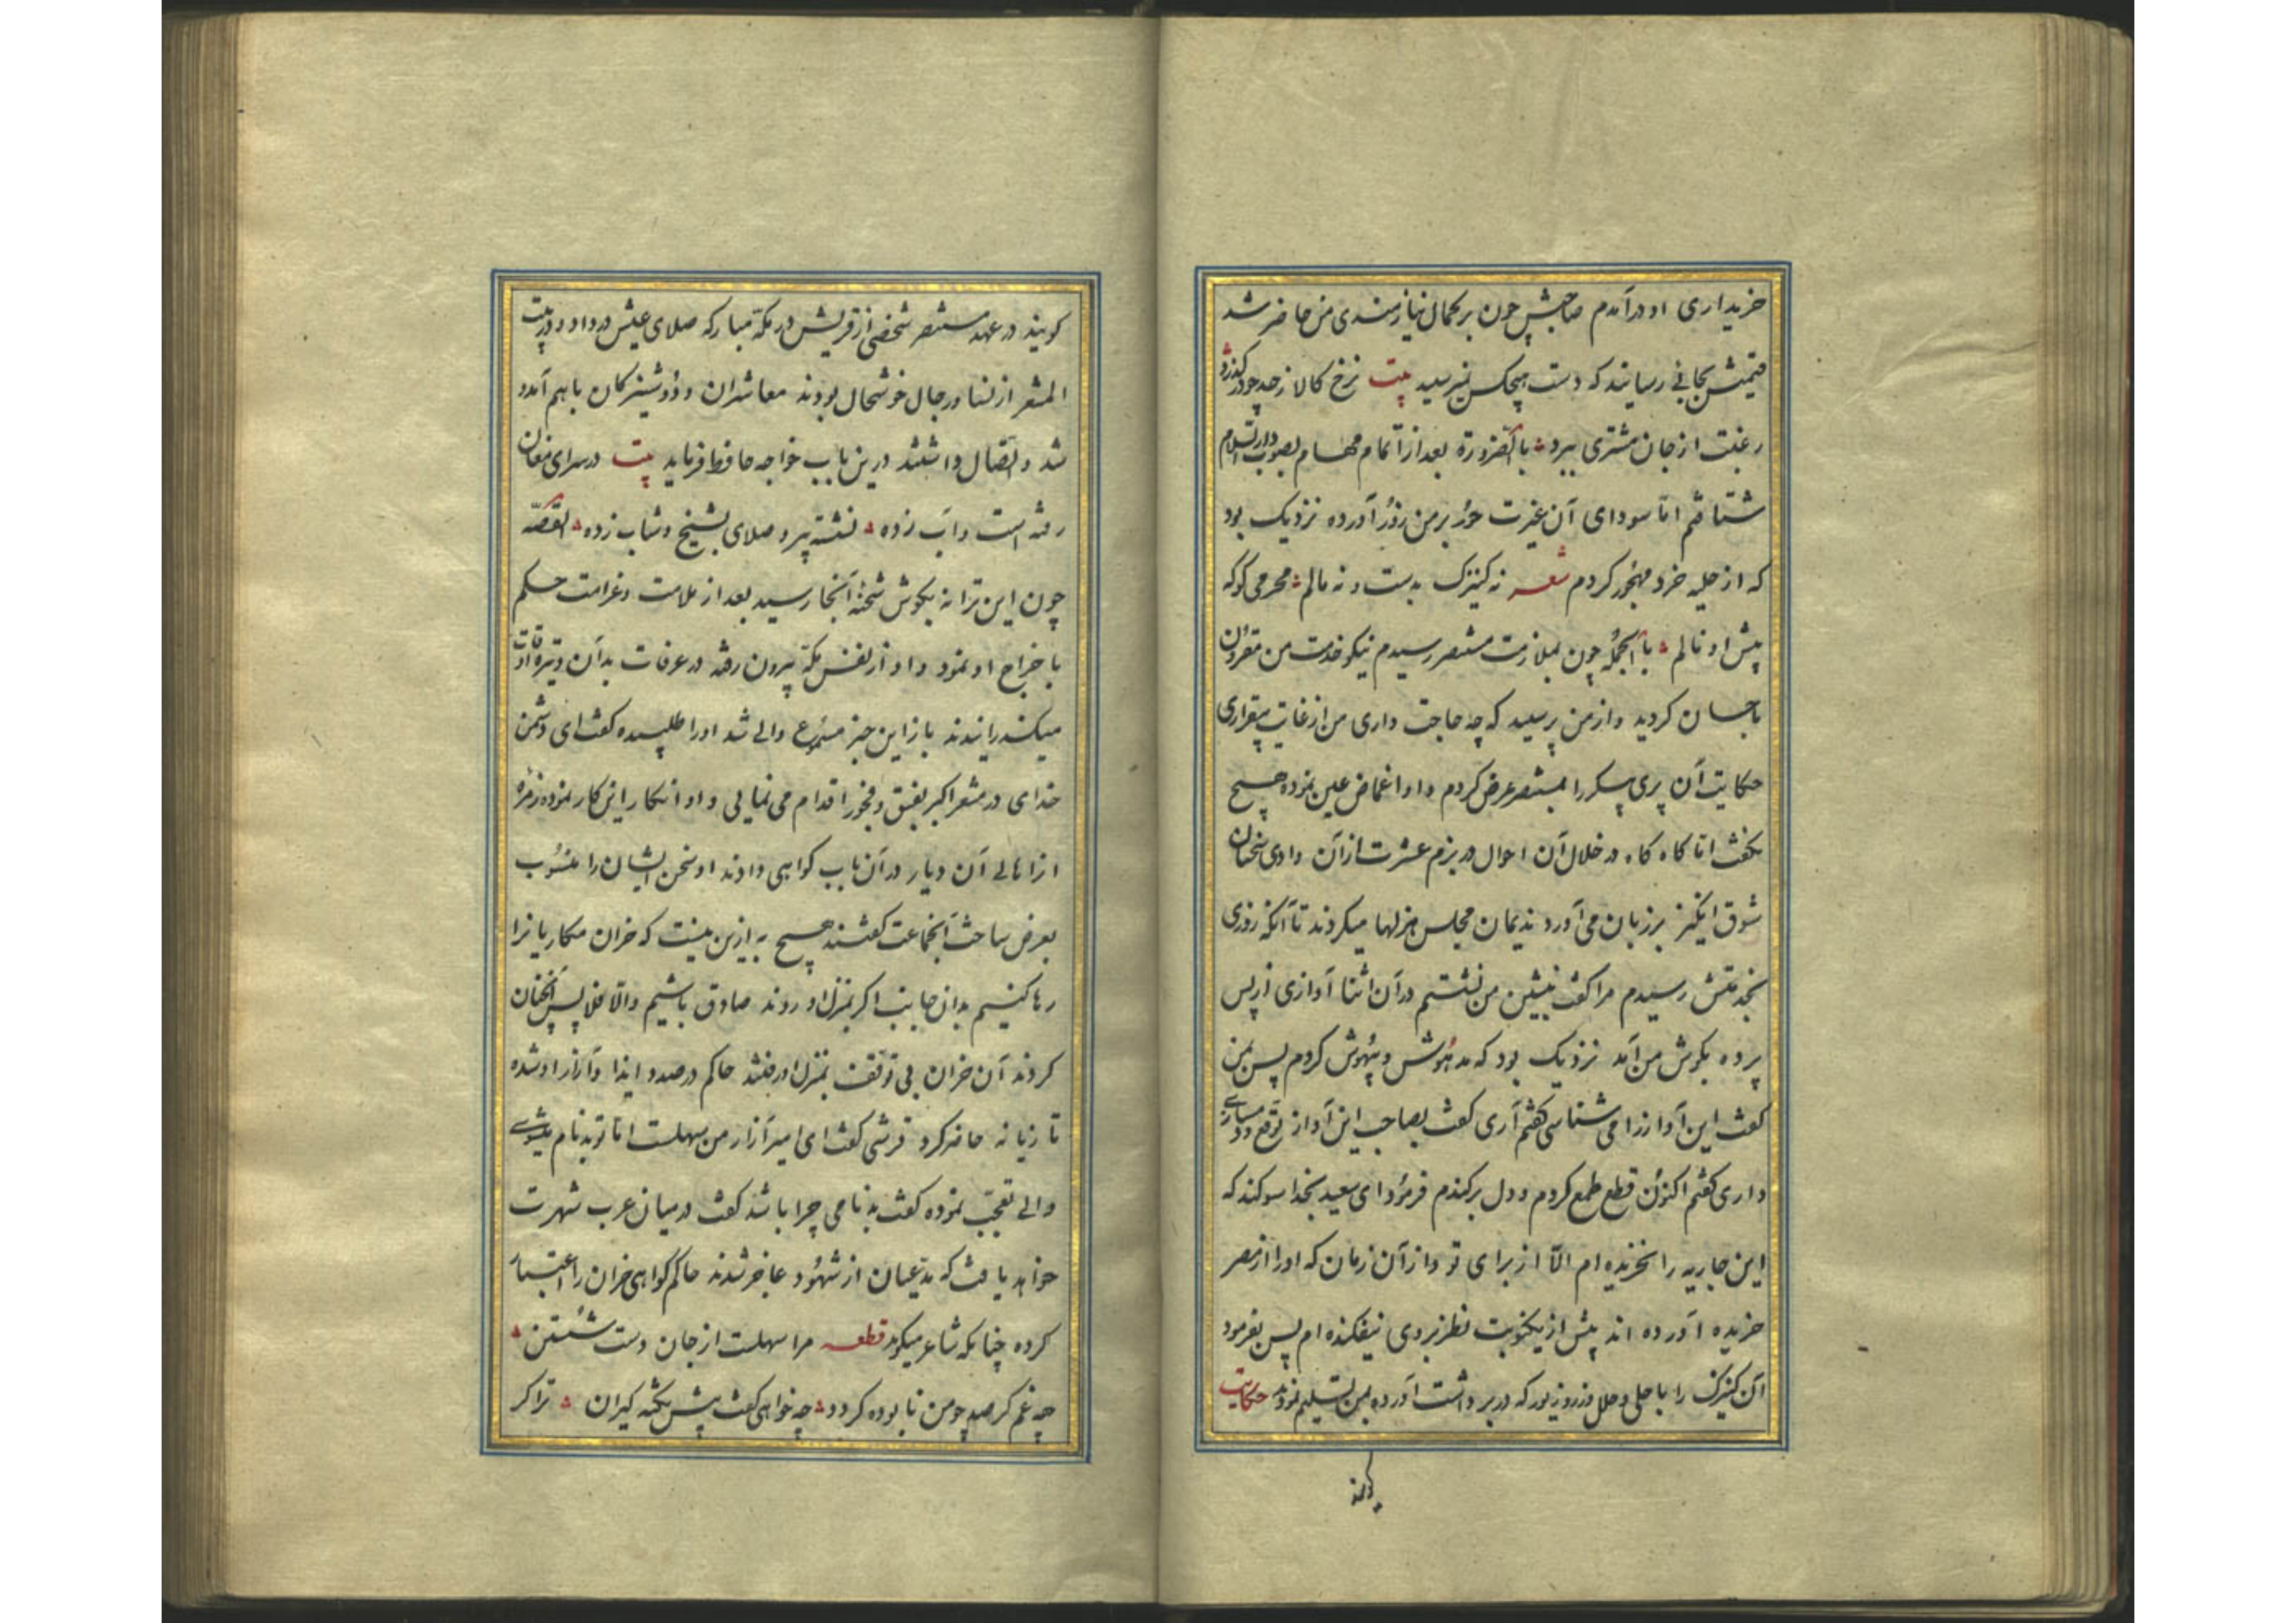 خریداری او درآمدم صاحبش چون بر کمال نیازمندی من حاضر شد
قیمتش بجائی رسانید که دست هیچکس نمیرسید بیت نرخ کالا ز حد چو در گذرد
رغبت از جان مشتری ببرد بالضرورة بعد از اتمام مهام بصوب دار السلام
شتافتم امّا سودای آن غیرت حور بر من زور آورده نزدیک بود
که از حلیه خرد مهجور کردم شعر نه کنیزک بدست و نه مالم محرمی کو که
پیش او نالم بالجمله چون بملازمت مستنصر رسیدم نیکو خدمت من مقرون
باحسان کردید و از من پرسید که چه حاجت داری من از غایت بیقراری
حکایت آن پری پیکر را بمستنصر عرض کردم و او اغماض عین نموده هیچ
نکفت امّا کاه کاه در خلال آن احوال در بزم عشرت از آن وادی سخنان
شوق انکیز بر زبان می آورد ندیمان مجلس هزلها میکردند تا آنکه روزی
بخدمتش رسیدم مرا کفت بنشین من نشستم در آن اثنا آوازی از پس
پرده بکوش من آمد نزدیک بود که مدهوش و بیهوش کردم پس بمن
کفت این آواز را می شناسی کفتم آری کفت بصاحب این آواز توقع
داری کفتم اکنون قطع طمع کردم و دل برکندم فرمود ای سعید بخدا سوکند که
این جاریه را نخریده ام الّا از برای تو و از آن زمان که او را از مصر
خریده آورده اند بیش از یکنوبت نظر بر وی نیفکنده ام پس بفرمود
آن کنیزک را با حلی و حلل و زر و زیور که در بر داشت آورده بمن تسلیم نمودند حکایت
کویند
کویند در عهد مستنصر شخصی از قریش در مکّه مبارکه صلای عیش در داد و در بیت
المشعر از نسا و رجال خوشحال بودند معاشران و دوشیزکان با هم آمد و
شد و اتصال داشتند درین باب خواجه حافظ فرماید بیت در سرای مغان
رفته است و آب زده نشسته پیر و صلای بشیخ و شاب زده القصّه
چون این ترانه بکوش شحنهٔ آنجا رسید بعد از ملامت و غرامت حکم
باخراج او نمود و او از نفس مکّه بیرون رفته در عرفات بدآن وتیره اوقات
میکذرانیدند باز این خبر مسموع والی شد او را طلبیده کفت ای دشمن
خدای در مشعر اکبر بفسق و فجور اقدام می نمایی و او انکار این کار نموده زمره
از اهالی آن دیار در آن باب کواهی دادند او سخن ایشان را منسوب
بغرض ساخت آنجماعت کفتند هیچ به ازین نیست که خران مکاریانرا
رها کنیم بدان جانب اکر بمنزل او روند صادق باشیم والّا فلا پس آنچنان
کردند آن خران بی توقف بمنزل او رفتند حاکم در صدد ایذا و آزار او شده
تازیانه حاضر کرد قرشی کفت ای امیر آزار من سهلست امّا تو بدنام میشوی
والی تعجّب نموده کفت بدنامی چرا باشد کفت در میان عرب شهرت
خواهد یافت که مدّعیان از شهود عاجز شدند حاکم کواهی خران را اعتبار
کرده چنانکه شاعر میکوید قطعه مرا سهلست از جان دست شستن
چه غم کر صد چو من نابوده کردد چه خواهی کفت پیش نکته کیران ترا کر